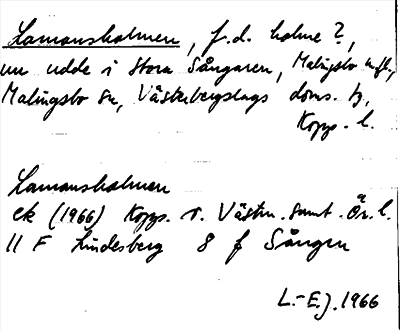 Lamansholmen, f.d. holme?,
nu udde i Stora Sången, Malingsbo kbfd.,
Malingsbo sn, Västerbergslags doms. tg,
Kopp. l.
Lamansholmen
ek (1966) Kopp. o. Västm. samt. Ör. l.
11 F Lindesberg 8 f Sången
L.-E.J. 1966